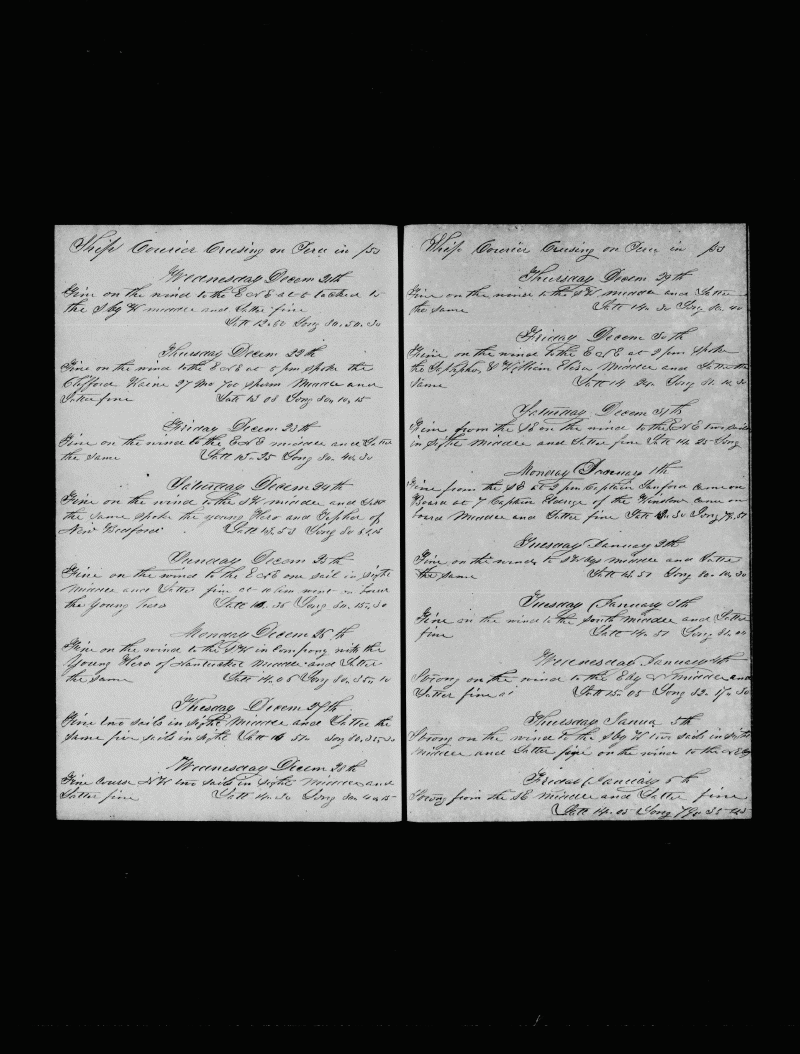 Ship Courier Cruising on Peru in 53
Wednesday Decem 21th
Fine on the wind to the E N E at 5 tacked to
the S by W middle and Latter fine
Latt 13.60 Long 80.50.30
Thursday Decem 22th
Fine on the wind to the E N E at 5 pm spoke the
Clifford Waine 27 mo 700 sperm Middle and
Latter fine Latt 13 08 Long 80.10.15
Friday Decem 23th
Fine on the wind to the E N E middle and Latter
the same Latt 13.25 Long 80.40.30
Saturday Decem 24th
Fine on the wind to the S W middle and Latt
the same spoke the young Hero and Zepher of
New Bedford Latt 13.53 Long 80
Sunday Decem 25th
Fine on the wind to the E N E one sail in sight
Middle and Latter fine at went on board
the Young hero Latt 35 Long 80.15.30
Monday Decem 26th
Fine on the wind to the S W in Company with the
Young Hero of Nantucket Middle and Latter
the same Latt 14.05 Long 80.35.10
Tuesday Decem 27th
Fine two sails in sight Middle and Latter the
same five sails in sight Latt Long 80.35.30
Wednesday Decem 28th
Fine Course N W two sails in sight Middle and
Latter fine Latt 14.30 Long 80.40.15
Ship Courier Cruising on Peru in 53
Thursday Decem 29th
Fine on the wind to the S W middle and Latter
the same Latt 14.30 Long 80.40
Friday Decem 30th
Fine on the wind to the E N E at 2 pm spoke
the & William Eliza Middle and Latter the
same Latt 14 24 Long 81.10.30
Saturday Decem 31th
Fine from the SE on the wind to the E N E two sails
in sight Middle and Latter fine Latt 14 25 Long
Monday January 1th
Fine from the SE at 2 pm Captain Sanford came on
Board at 7 Captain of the Winslow came on
board Middle and Latter fine Latt 30 Long 79.57
Tuesday January 2th
Fine on the wind to middle and Latter
the same Latt 13.57 Long 80.10.30
Tuesday January 3th
Fine on the wind to the South Middle and Latter
fine Latt 14.57 Long 81.00
Wednesday January 4th
Strong on the wind to the E by N middle and
Latter fine Latt 15.05 Long 82.17.30
Thursday Janua 5th
Strong on the wind to the S by W two sails in sight
Middle and Latter fine on the wind to the N E by
Friday January 6th
Strong from the SE Middle and Latter fine
Latt 14.05 Long 79.35.45